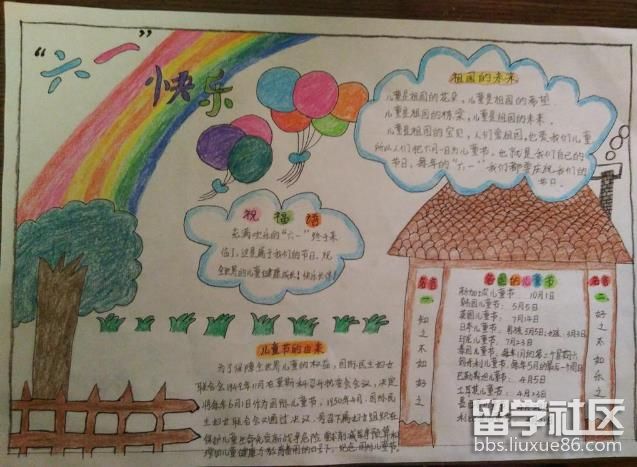 “六一”
快乐
祖国的未来
儿童是祖国的花朵,儿童是祖国的希望
儿童是祖国的栋梁,儿童是祖国的未来.
儿童是祖国的宝贝,人们爱祖国,也爱我们儿童
所以人们把六月一日为儿童节。也就是我们自己的
节日,每年的“六一”我们都要庆祝我们的
节日。
祝福语
充满欢乐的“六一”终于来
临了,这是属于我们的节日,祝
全世界的儿童健康成长!快乐长大!
儿童节的由来
为了保障全世界儿童的权益,国际民主妇女
联合会1949年11月在莫斯科召开执委会会议,决定
将每年6月1日作为国际儿童节,1950年4月,国际民
主妇女联合会又通过决议,号召下属妇女组织在
保护儿童
名言一
知之不如好之
各国的儿童节
新加坡儿童节:10月1日
韩国儿童节:5月5日
英国儿童节:7月14日
日本儿童节:男孩3月5日 女孩3月3日
印尼儿童节:7月23日
泰国儿童节:每年1月的第二个星期六
哥伦比亚儿童节:每年
巴勒斯坦儿童节:4月5日
土耳其儿童节:4月23日
名言二
好之不如乐之
留学社区
bbs.liuxue86.com